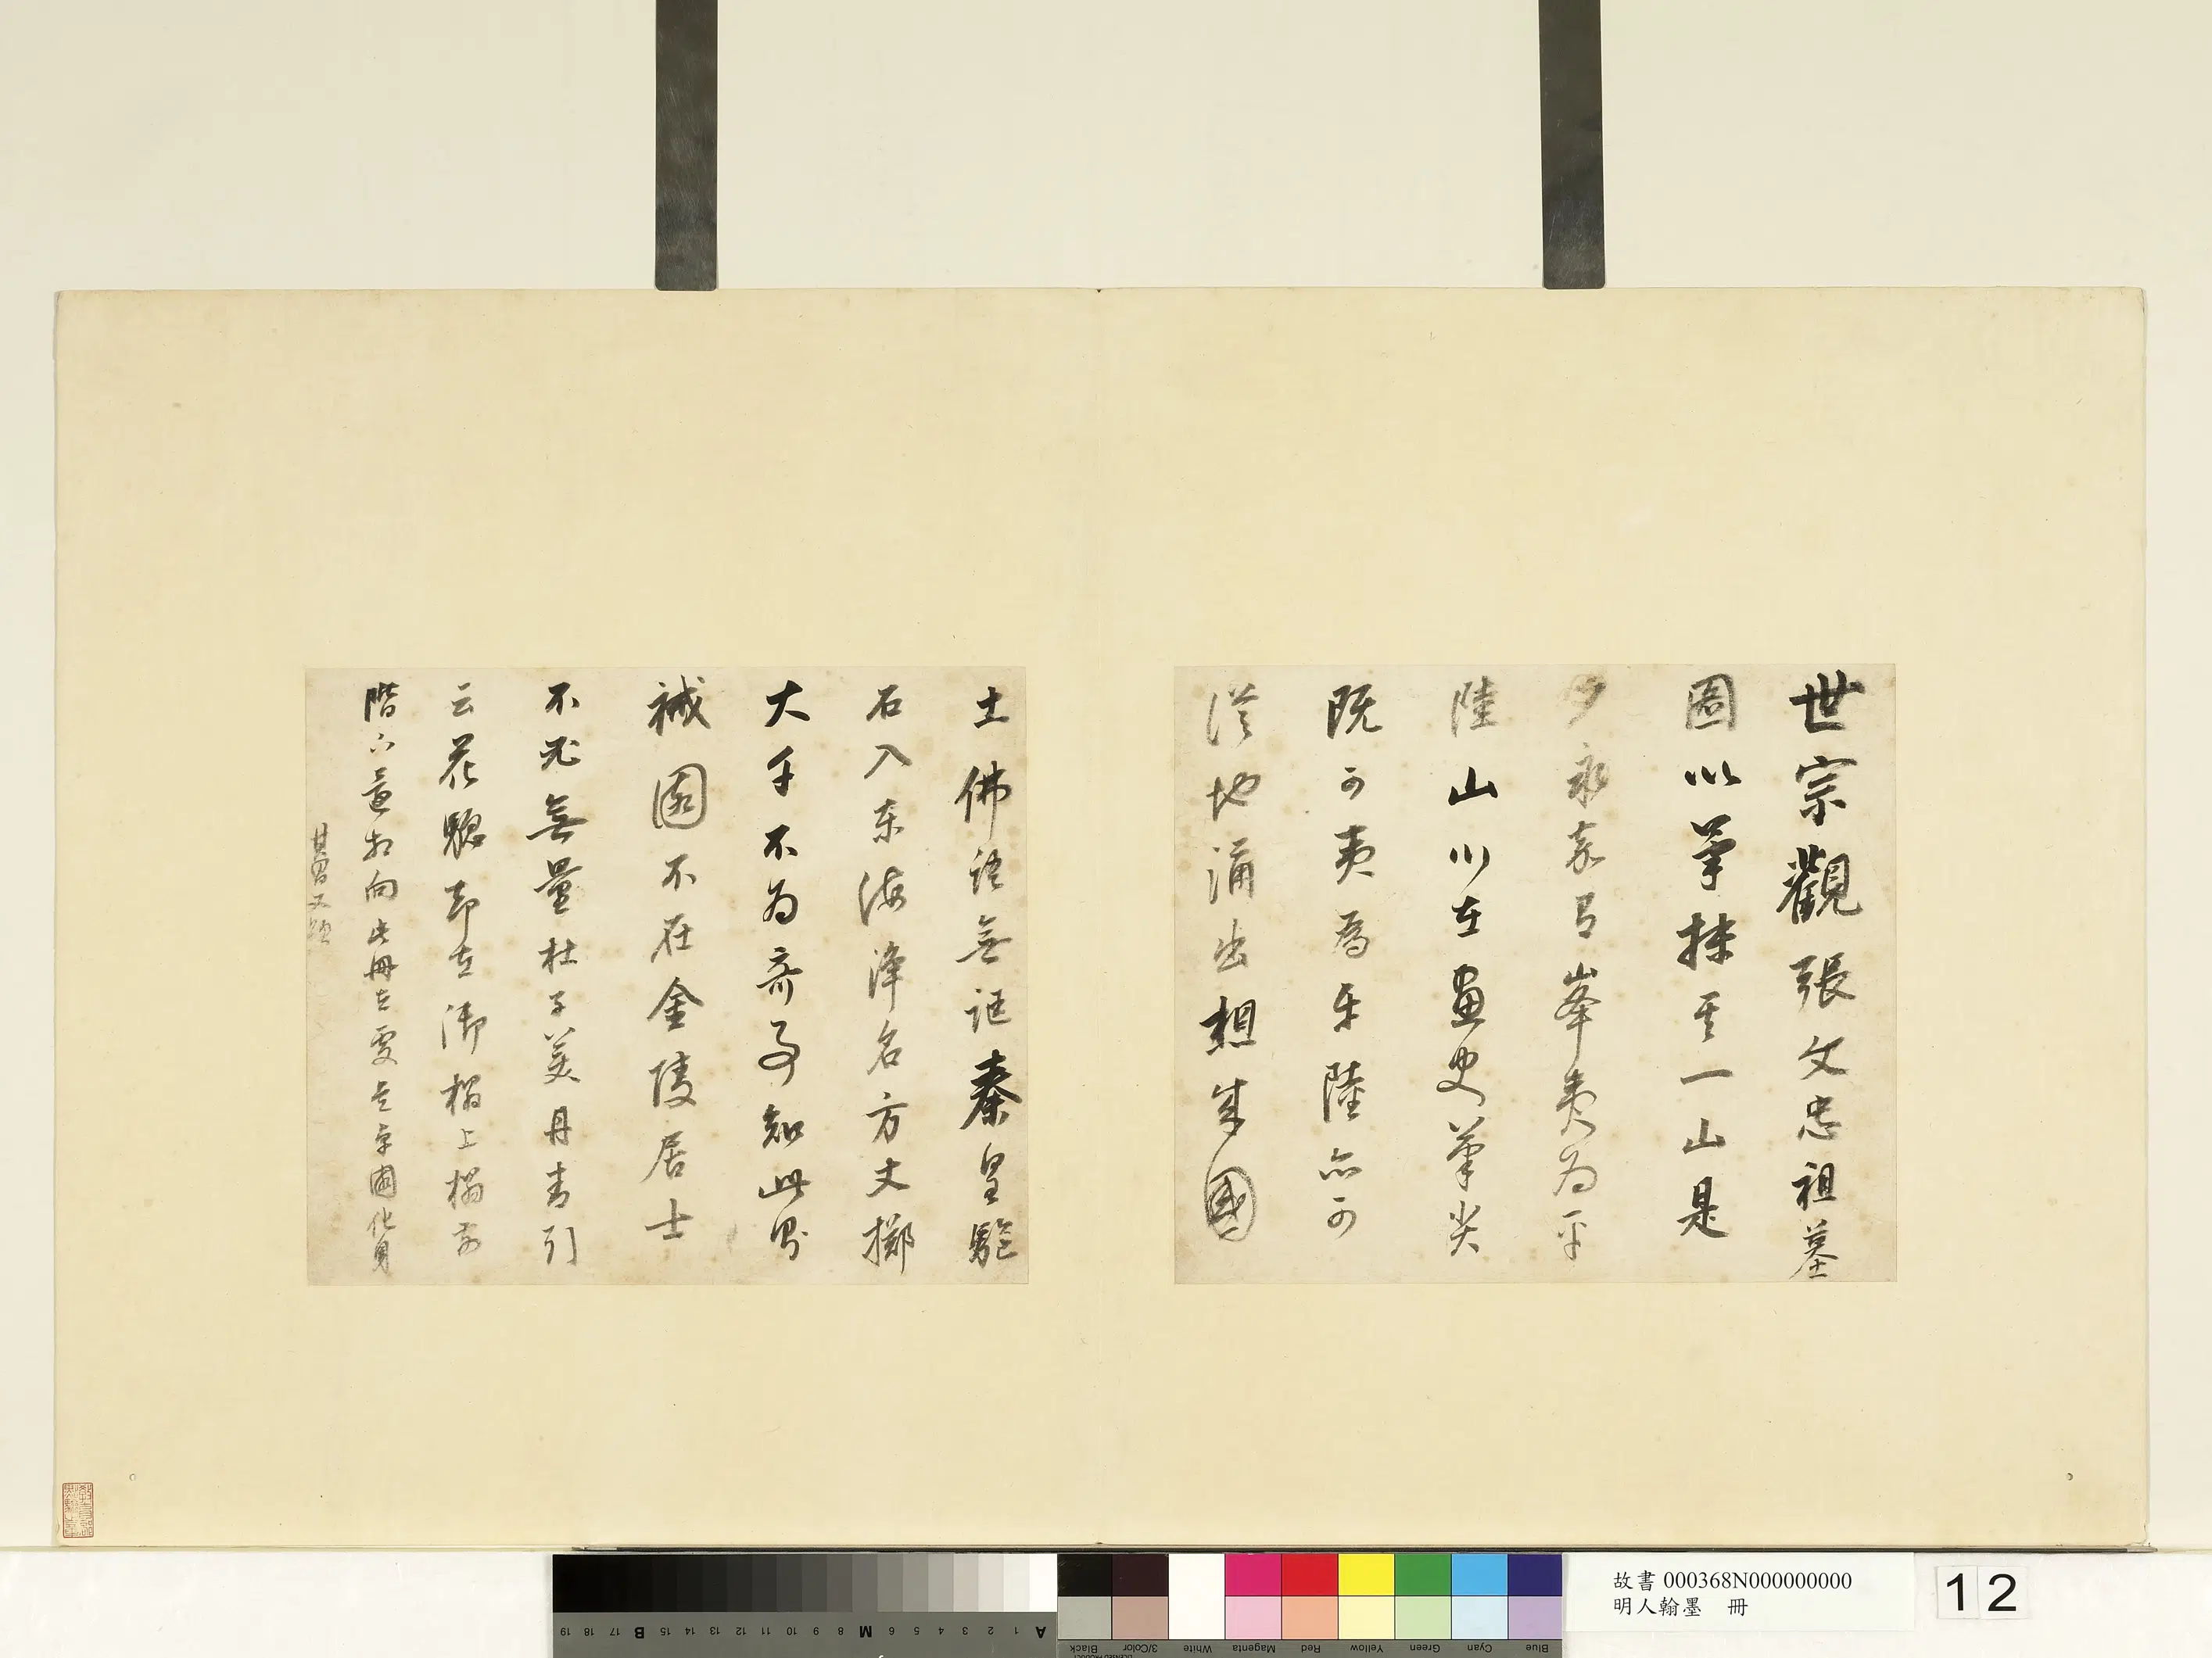 世宗觀張文忠祖墓
圖以筆抹其一山是
夕永嘉弓峯夷為平
陸山川在畫史筆尖
既可夷為平陸亦可
從地涌出想成國
土佛語無誑秦皇驅
石入東海淨名方丈擲
大千不為奇事知此界
祴園不在金陵居士
不死無量杜子美丹青引
云花驄却在御榻上榻前
階下益相向此冊在處是
其昌又題
故書 000368N000000000
明人翰墨 冊
12
A 1 2 3 4 5 6 M 8 9 10 11 12 13 14 15 B 17 18 19
Blue Cyan Green Yellow Red Magenta White 3/Color Black